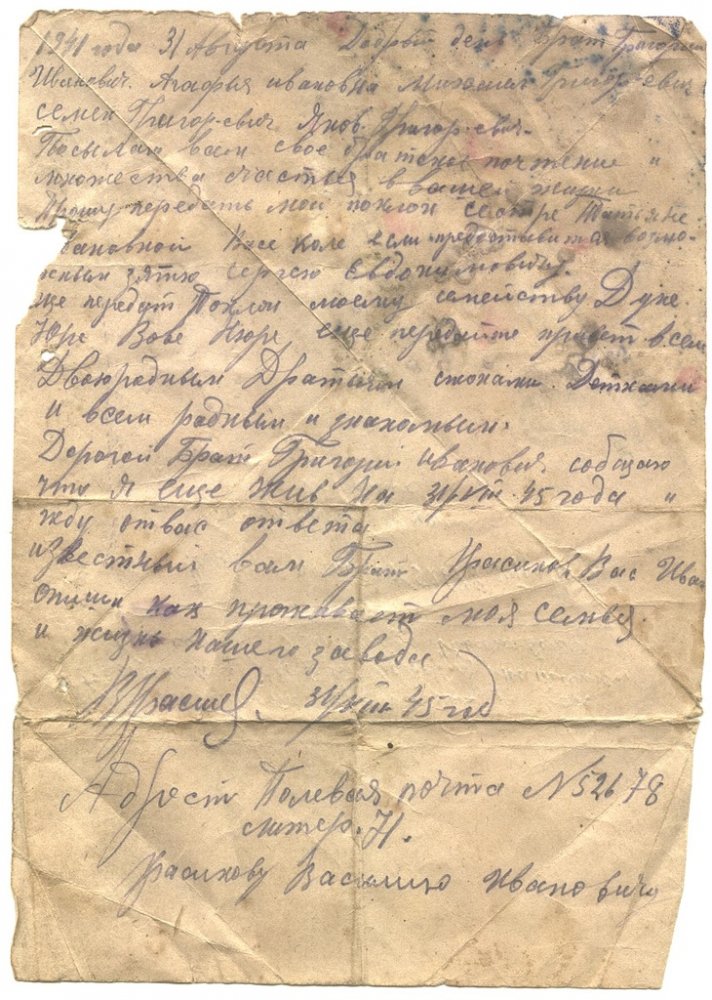 1941 года 31 Августа Добрый день Брат Григорий
Иванович. Агафья ивановна Михаил Григорьевич
семен Григор-евич Яков Григор-евич.
Посылаю вам свое братское почтение и
множества счастья в вашей жизни
Прошу передать мой поклон сестре Татьяне
Вановной Васе коле если предоставится возмо-
жным зятю Сергею Евдокимовичу.
ще передат Поклон моему семейству Дуне
Юре Вове Нюре еще передайте привет всем
Двоюродным Братьям сженами Детками
и всем родным и знакомым.
Дорогой Брат Григорий Иванович собщаю
что я еще жив на 31/VIII 45 года и
жду отвас ответа
известный вам Брат Вас Иван
опиши как проживает моя семья
и жизнь нашего завода
31/VIII 45 год
Адрест Полевая почта N 52678
литер. И.
Василию Ивановичу